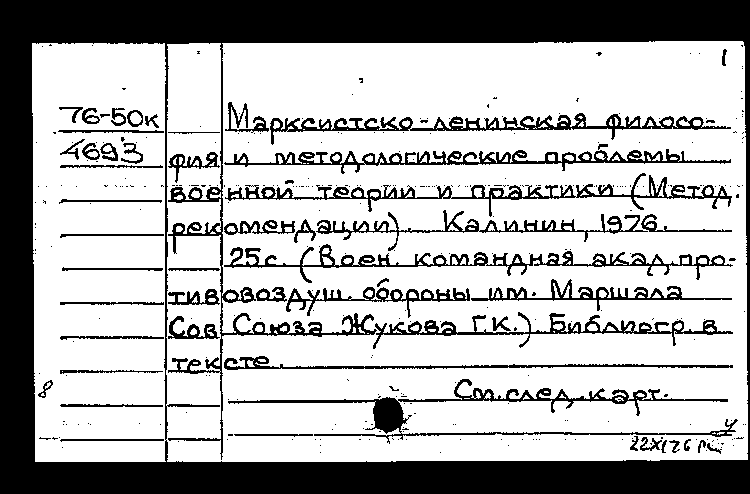 1
76-50к Марксистско-ленинская филосо-
4693 фия и методологические проблемы
военной теории и практики (Метод.
рекомендации). Калинин, 1976.
25с. (Воен. командная акад. про-
тивовоздуш. обороны им. Маршала
Сов Союза Жукова Г.К.). Библиогр. в
тексте.
8 См. след. карт.
22XI76